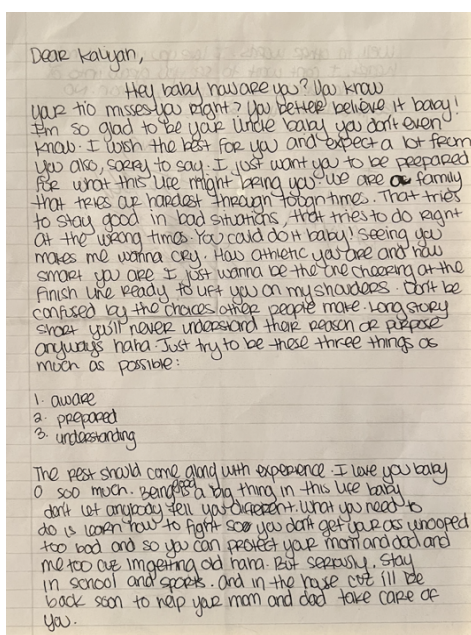 Dear Kaliyan,
Hey baby how are you? You know
your tio misses you right? You better believe it baby!
I'm so glad to be your uncle baby you don't even
know. I wish the best for you and expect a lot from
you also, sorry to say. I just want you to be prepared
for what this life might bring you. We are a family
that tries our hardest through tough times. That tries
to stay good in bad situations, that tries to do right
at the wrong times. You could do it baby! Seeing you
makes me wanna cry. How athletic you are and how
smart you are I just wanna be the one cheering at the
finish line ready to lift you on my shoulders. Don't be
confused by the choices other people make. Long story
short you'll never understand their reason or purpose
anyways haha. Just try to be these three things as
much as possible:
1. aware
2. prepared
3. understanding
The rest should come along with experience. I love you baby
0 soo much. Being good is a big thing in this life baby
don't let anybody tell you different. What you need to
do is learn how to fight so you don't get your ass whooped
too bad and so you can protect your mom and dad and
me too cuz im getting old haha. But seriously. Stay
in school and sports. and in the house cuz i'll be
back soon to help your mom and dad take care of
you.